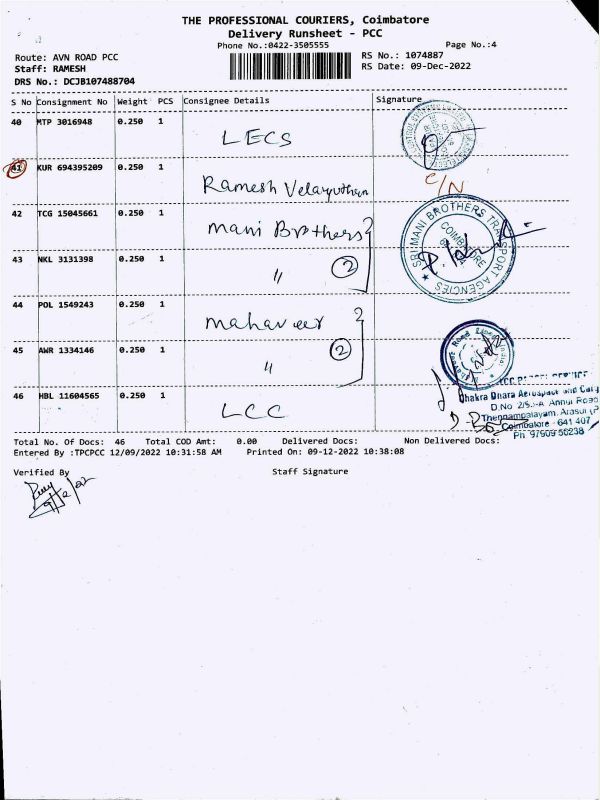 THE PROFESSIONAL COURIERS, Coimbatore
Delivery Runsheet - PCC
Phone No.:0422-3505555
Page No.:4
Route: AVN ROAD PCC
RS No.: 1074887
Staff: RAMESH
RS Date: 09-Dec-2022
DRS No.: DCJB107488704
S No Consignment No Weight PCS Consignee Details Signature
40 MTP 3016948 0.250 1
LECS
41 KUR 694395209 0.250 1
C/N
Ramesh Velayutham
42 TCG 15045661 0.250 1
Mani Brothers
SRI MANI BROTHERS TRANSPORT AGENCIES
COIMBATORE
43 NKL 3131398 0.250 1
" 2
44 POL 1549243 0.250 1
Mahaveer
45 AWR 1334146 0.250 1
" 2
46 HBL 11604565 0.250 1
LCC
Dhakra Dhara Aerospace and Carg
Thennampalayam, Arasur (P
Coimbatore - 641 407
Ph 97909 50238
Total No. Of Docs: 46 Total COD Amt: 0.00 Delivered Docs: Non Delivered Docs:
Entered By :TPCPCC 12/09/2022 10:31:58 AM Printed On: 09-12-2022 10:38:08
Verified By Staff Signature